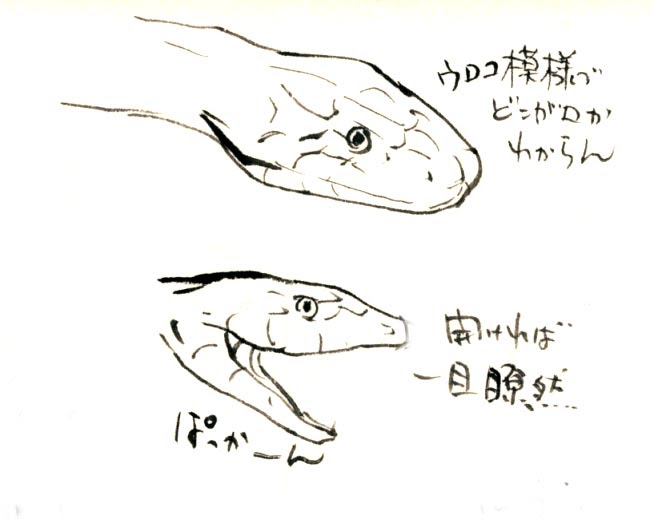 ウロコ模様で
どこが口か
わからん
開ければ
一目瞭然…
ぽっかーん